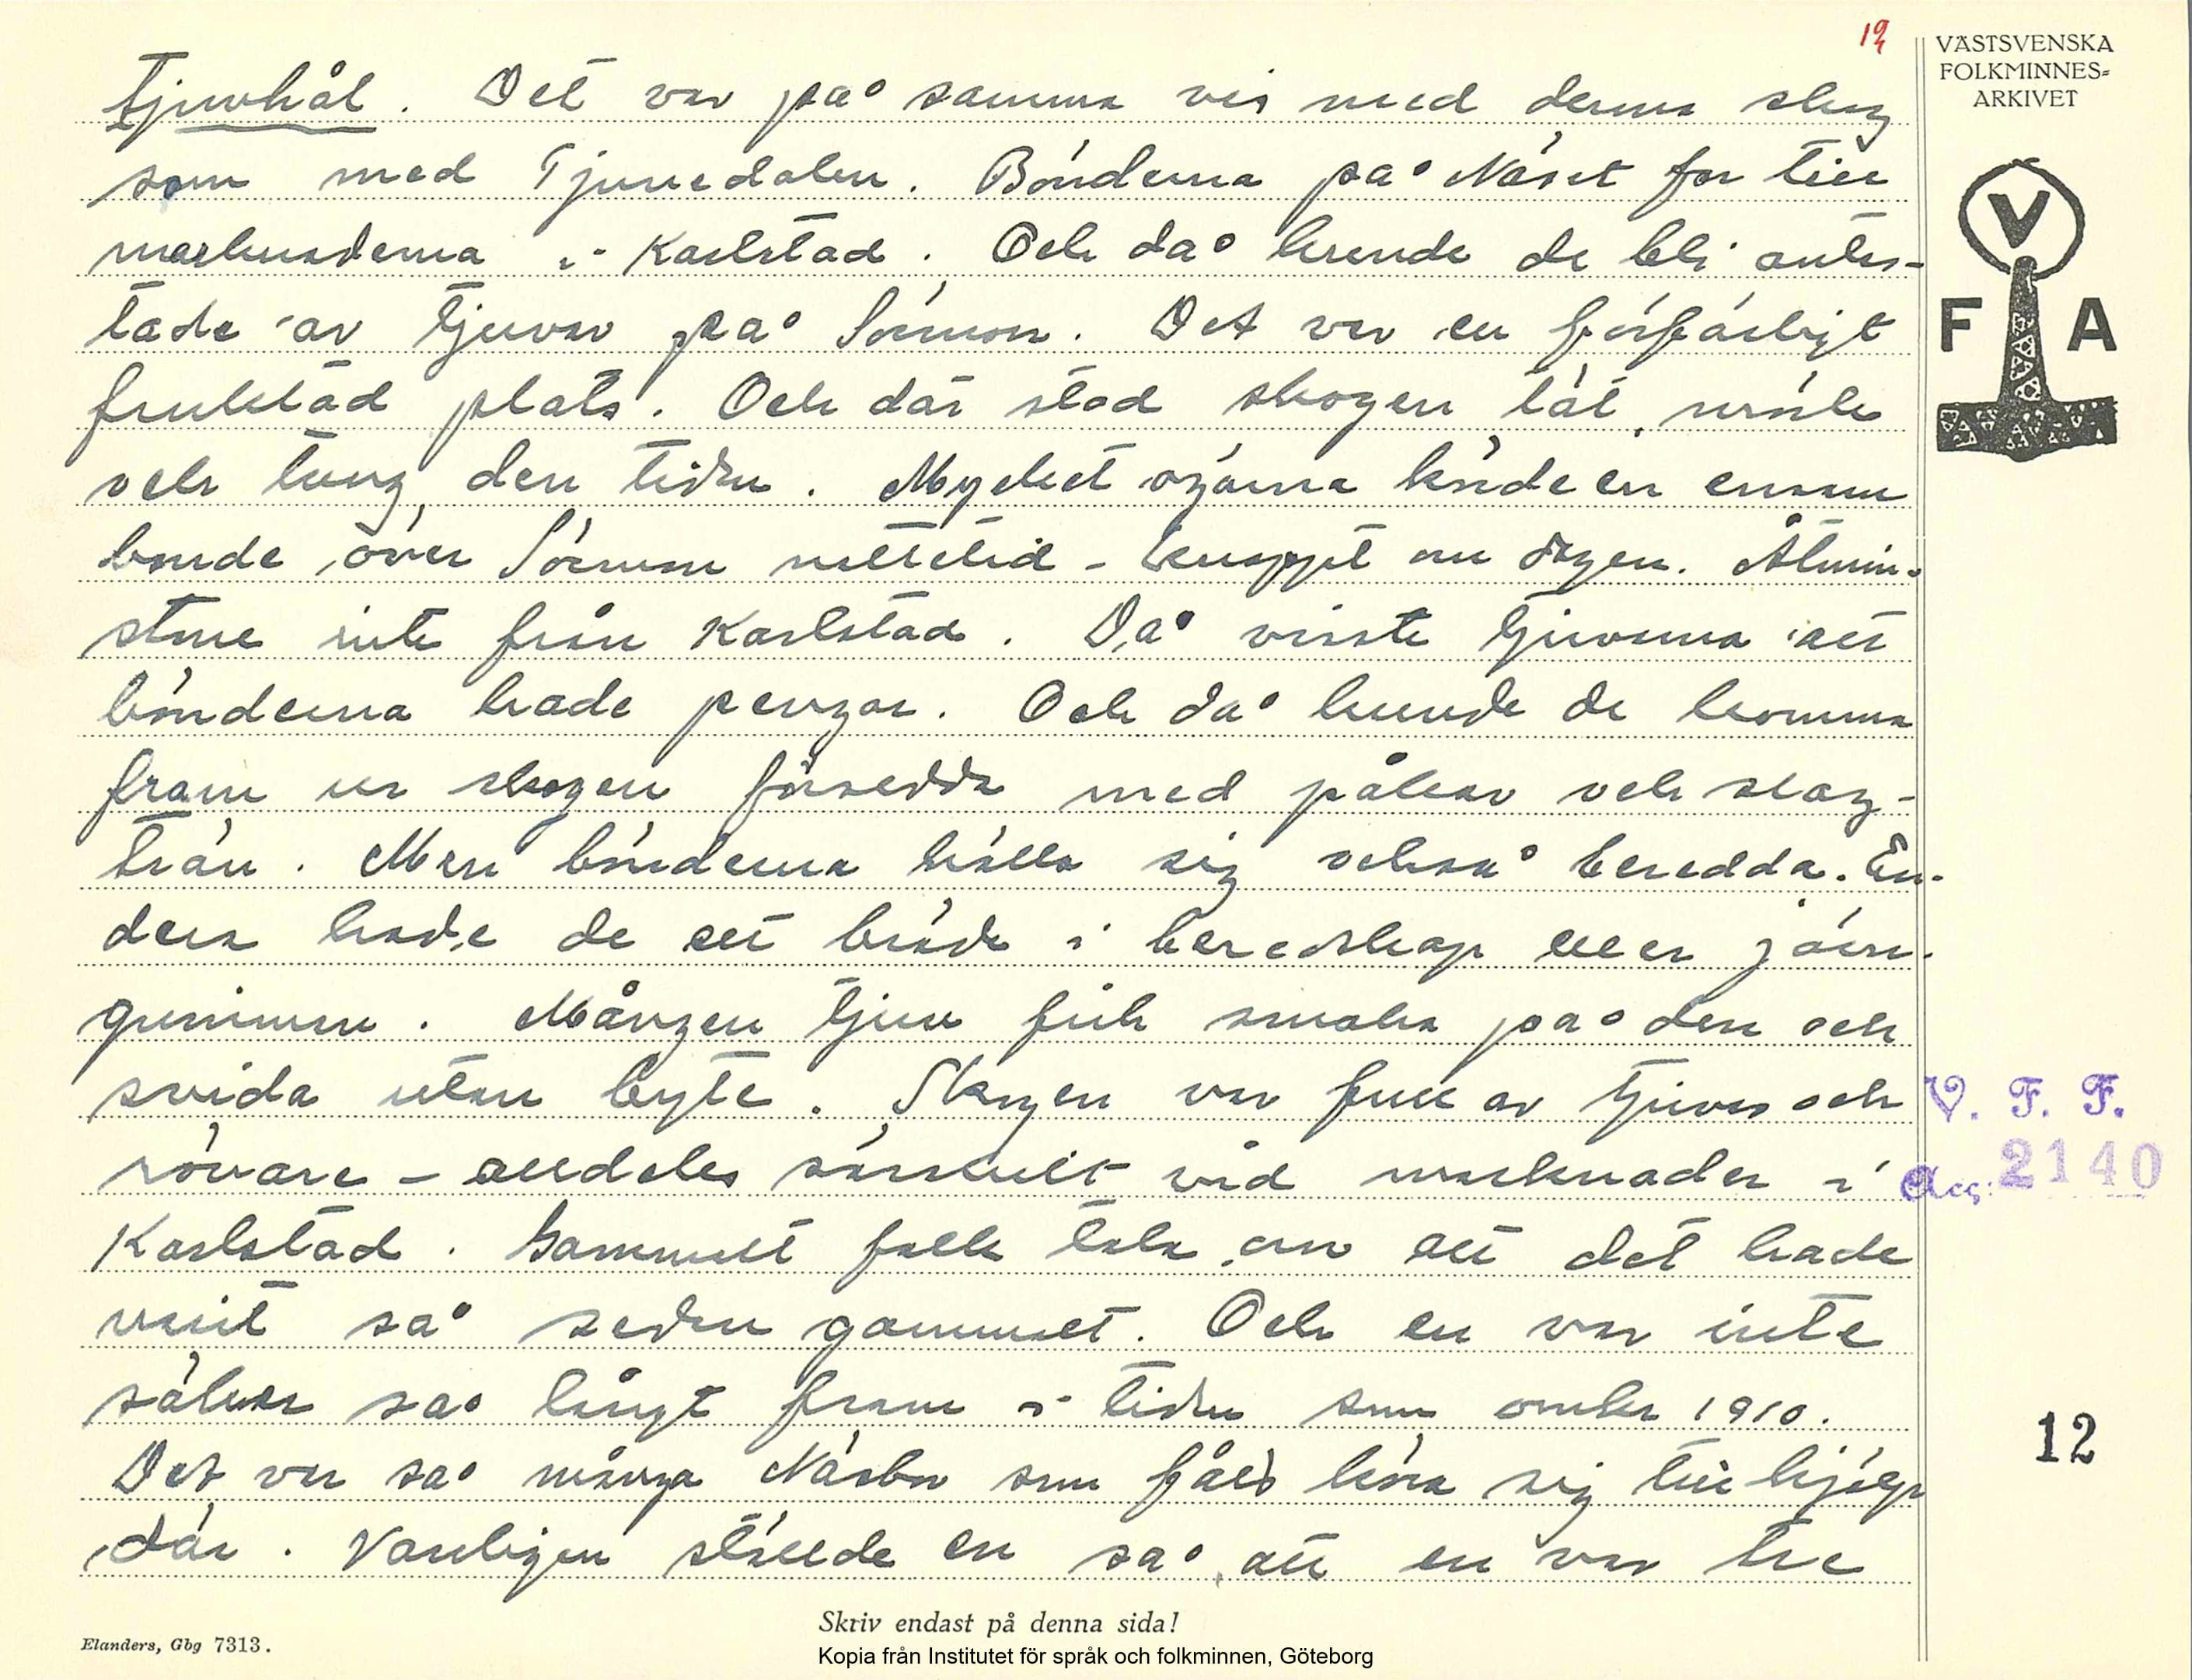 19
VÄSTSVENSKA
FOLKMINNES=
ARKIVET
V
F A
Tjuvhål. Det var på samma vis med denna skog
som med Tjuvedalen. Bönderna på Näset for till
marknaderna i Karlstad. Och då kunde de bli antas-
tade av tjuvar på Sörmon. Det var en förfärligt
fruktad plats. Och där stod skogen tät, mörk
och tung den tiden. Mycket ogärna körde en ensam
bonde över Sörmon nattetid - knappt om dagen. Åtmin-
stone inte från Karlstad. Då visste tjuvarna att
bönderna hade pengar. Och då kunde de komma
fram ur skogen försedda med påkar och slag-
trän. Men bönderna höllo sig också beredda. En-
dera hade de ett bräde i beredskap eller järn-
grimman. Mången tjuv fick smaka på den och
svida utan byte. Skogen var full av tjuvar och
rövare - alldeles särskilt vid marknader i
Karlstad. Gammalt folk tala om att det hade
varit så sedan gammalt. Och en var inte
säker så långt fram i tiden som omkr 1910.
Det var så många Näsbor som fått köra sig till hjälp
där. Vanligen ställde en så att en var tre
V. F. F.
Acc: 2140
12
Skriv endast på denna sida!
Elanders, Gbg 7313.
Kopia från Institutet för språk och folkminnen, Göteborg